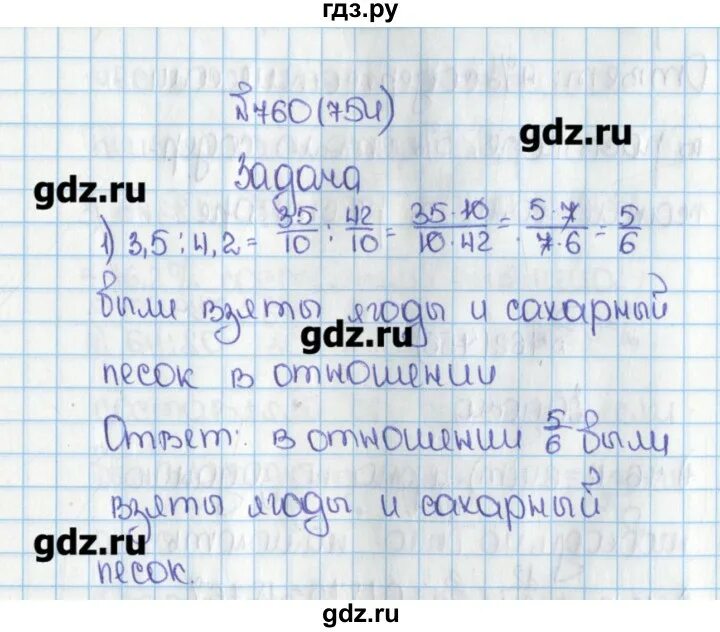 гдз.ру
№760(754)
gdz.ru
Задача
gdz.ru
1) 3,5 : 4,2 = 35/10 : 42/10 = 35·10/10·42 = 5·7/7·6 = 5/6
были взяты ягоды и сахарный
gdz.ru
песок в отношении
Ответ: в отношении 5/6 были
взяты ягоды и сахарный
gdz.ru
песок.
gdz.ru